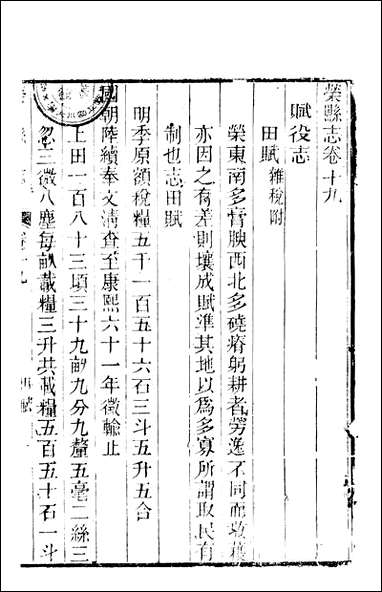 榮縣志卷十九
賦役志
田賦 雜稅附
榮東南多膏腴西北多磽瘠躬耕者勞逸不同而收穫
亦因之有差則壤成賦準其地以爲多寡所謂取民有
制也志田賦
明季原額稅糧五千一百五十六石三斗五升五合
國朝陸續奉文清查至康熙六十一年徵輸止
上田一百八十三頃三十九畝九分九釐五毫二絲三
忽二微八塵每畝載糧三升共載糧五百五十石一斗